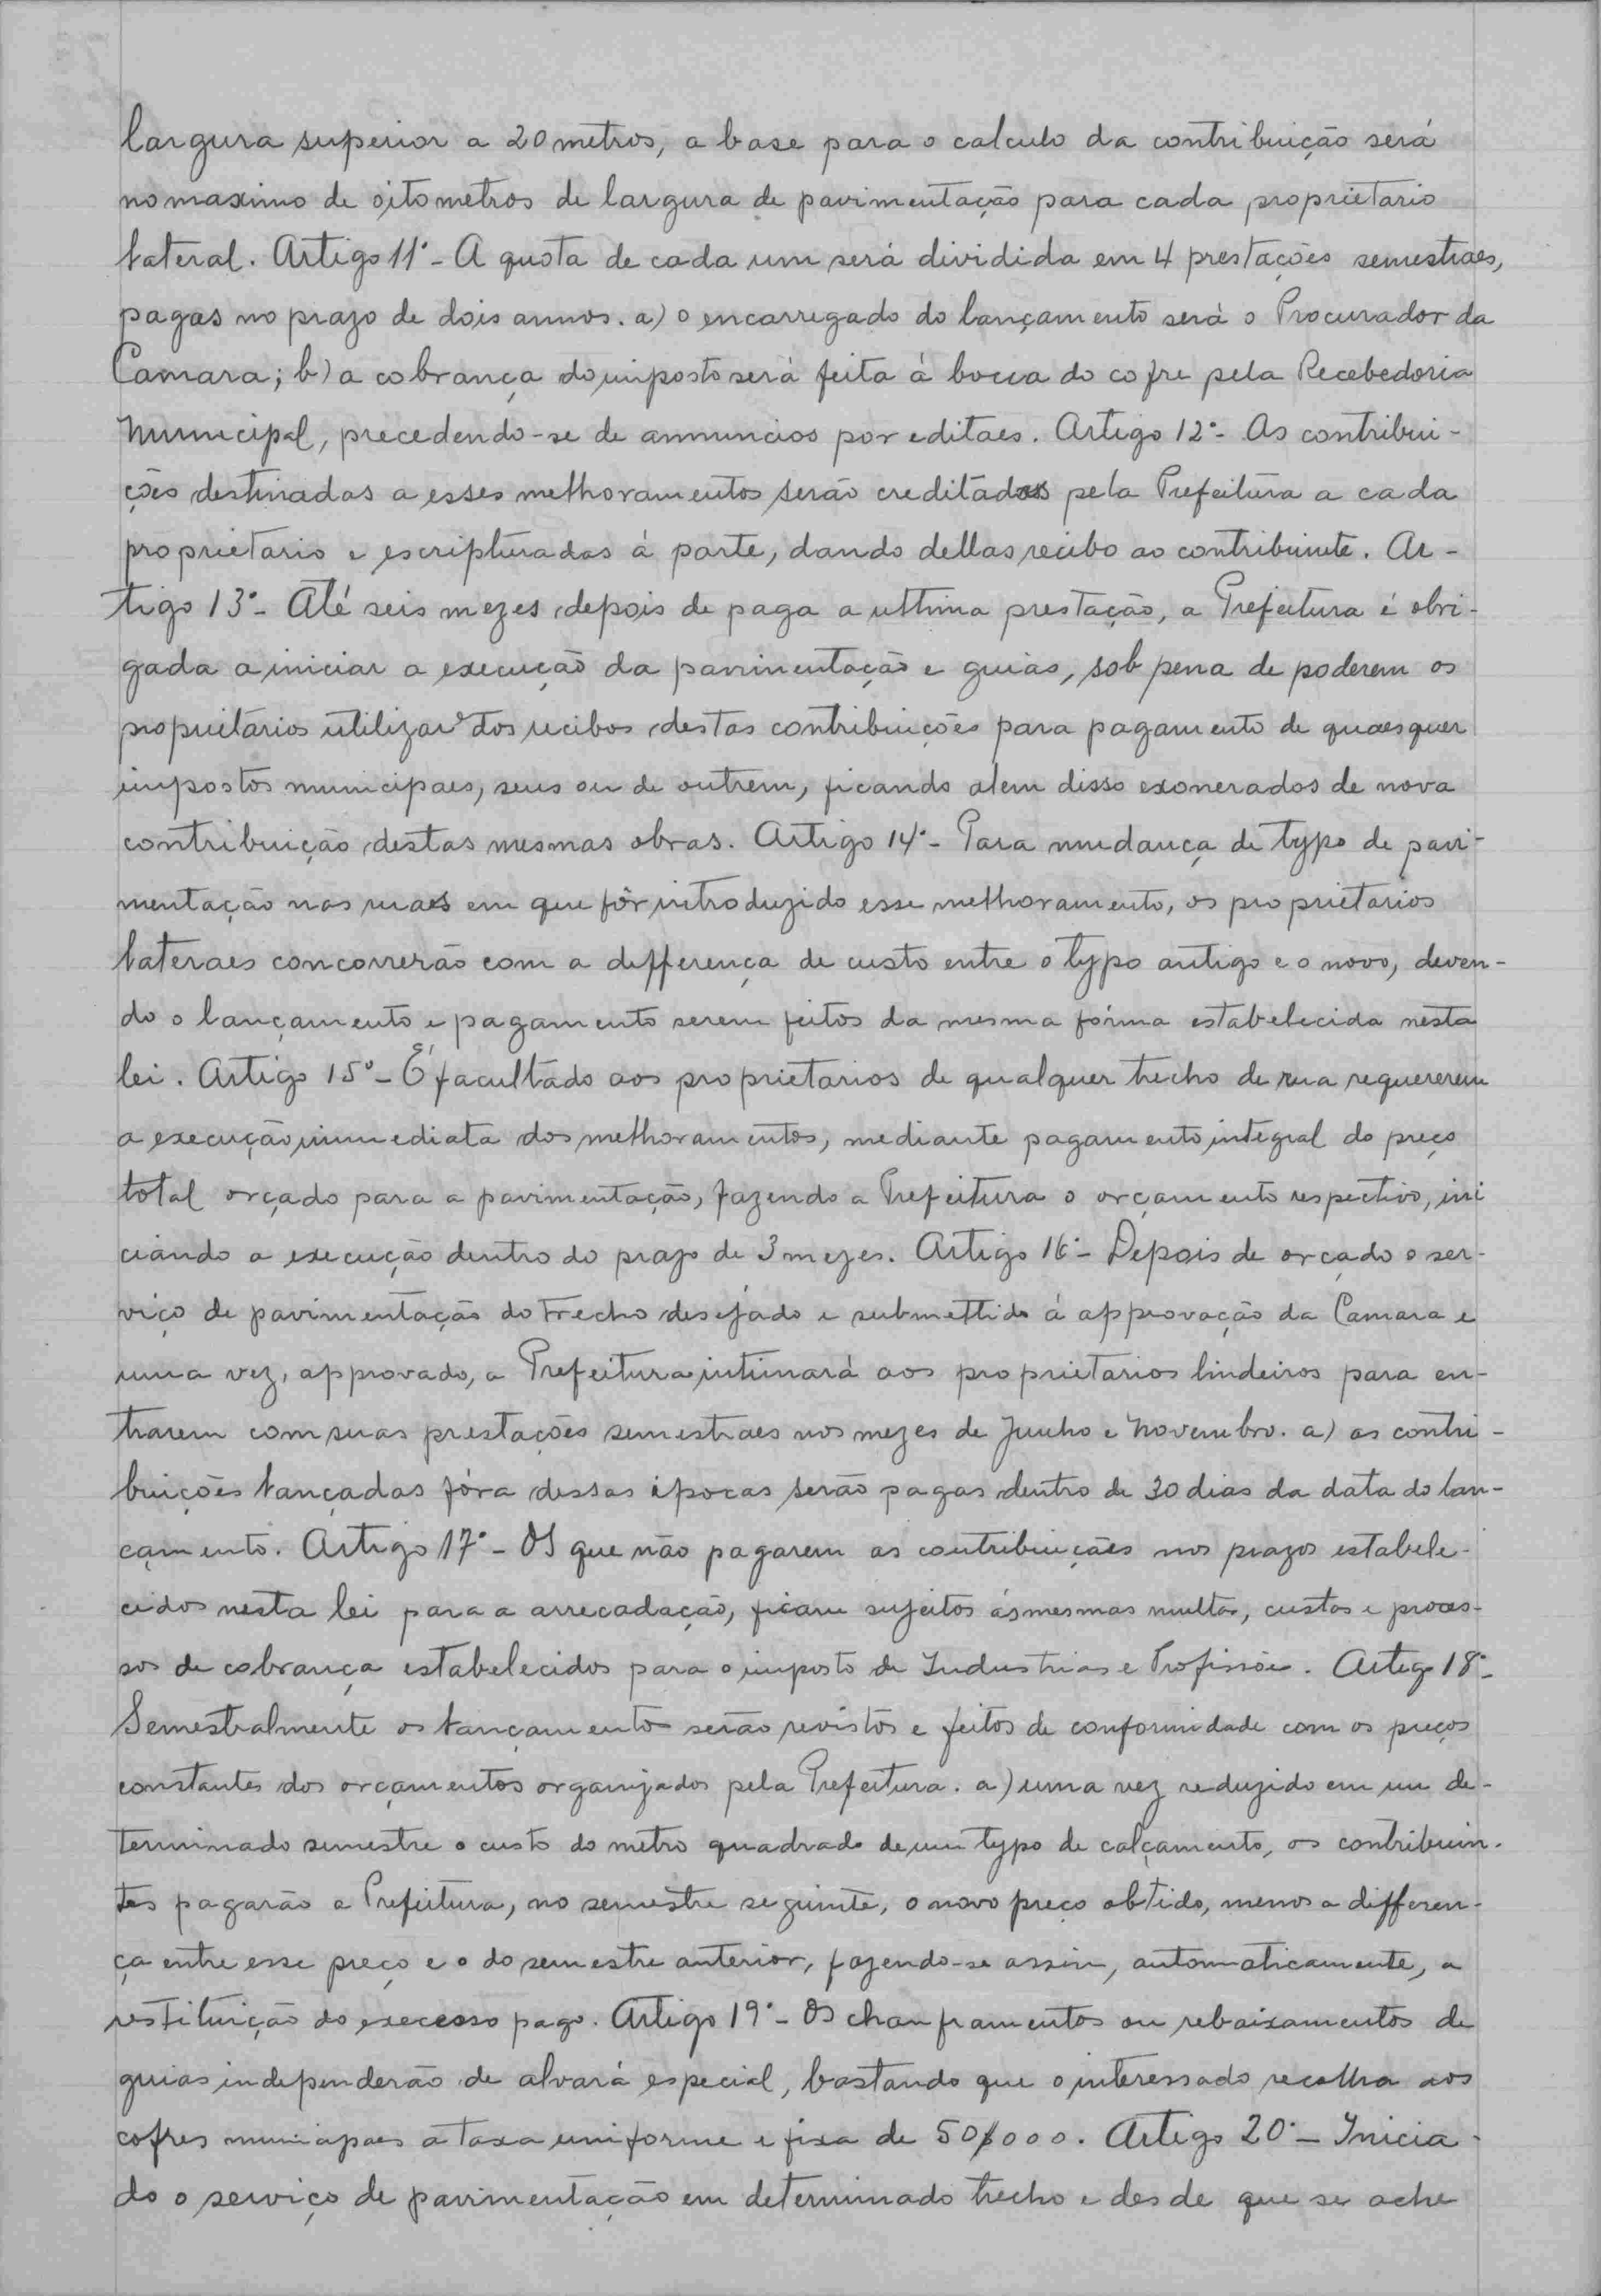 largura superior a 20 metros, a base para o calculo da contribuição será
no maximo de oito metros de largura de pavimentação para cada proprietario
lateral. Artigo 11º - A quota de cada um será dividida em 4 prestações semestraes,
pagas no prazo de dois annos. a) o encarregado do lançamento será o Procurador da
Camara; b) a cobrança do imposto será feita á bocca do cofre pela Recebedoria
Municipal, precedendo-se de annuncios por editaes. Artigo 12º - As contribui-
ções destinadas a esses melhoramentos serão creditadas pela Prefeitura a cada
proprietario e escripturadas á parte, dando dellas recibo ao contribuinte. Ar-
tigo 13º - Até seis mezes depois de paga a ultima prestação, a Prefeitura é obri-
gada a iniciar a execução da pavimentação e guias, sob pena de poderem os
proprietarios utilizar dos recibos destas contribuições para pagamento de quaesquer
impostos municipaes, seus ou de outrem, ficando alem disso exonerados de nova
contribuição destas mesmas obras. Artigo 14º - Para mudança de typo de pavi-
mentação nas ruas em que fôr introduzido esse melhoramento, os proprietarios
lateraes concorrerão com a differença de custo entre o typo antigo e o novo, deven-
do o lançamento e pagamento serem feitos da mesma fórma estabelecida nesta
lei. Artigo 15º - É facultado aos proprietarios de qualquer trecho de rua requererem
a execução immediata dos melhoramentos, mediante pagamento integral do preço
total orçado para a pavimentação, fazendo a Prefeitura o orçamento respectivo, ini
ciando a execução dentro do prazo de 3 mezes. Artigo 16º - Depois de orçado o ser-
viço de pavimentação do trecho desejado e submettido á approvação da Camara e
uma vez, approvado, a Prefeitura intimará aos proprietarios lindeiros para en-
trarem com suas prestações semestraes nos mezes de Junho e Novembro. a) as contri-
buições lançadas fóra dessas épocas serão pagas dentro de 30 dias da data do lan-
çamento. Artigo 17º - Os que não pagarem as contribuições nos prazos estabele-
cidos nesta lei para a arrecadação, ficam sujeitos ás mesmas multas, custas e proces-
sos de cobrança estabelecidos para o imposto de Industrias e Profissões. Artigo 18º -
Semestralmente os lançamentos serão revistos e feitos de conformidade com os preços
constantes dos orçamentos organizados pela Prefeitura. a) uma vez reduzido em um de-
terminado semestre o custo do metro quadrado de um typo de calçamento, os contribuin-
tes pagarão a Prefeitura, no semestre seguinte, o novo preço obtido, menos a differen-
ça entre esse preço e o do semestre anterior, fazendo-se assim, automaticamente, a
restituição do excesso pago. Artigo 19º - Os chanframentos ou rebaixamentos de
guias independerão de alvará especial, bastando que o interessado recolha aos
cofres municipaes a taxa uniforme e fixa de 50$000. Artigo 20º - Inicia-
do o serviço de pavimentação em determinado trecho e desde que se ache